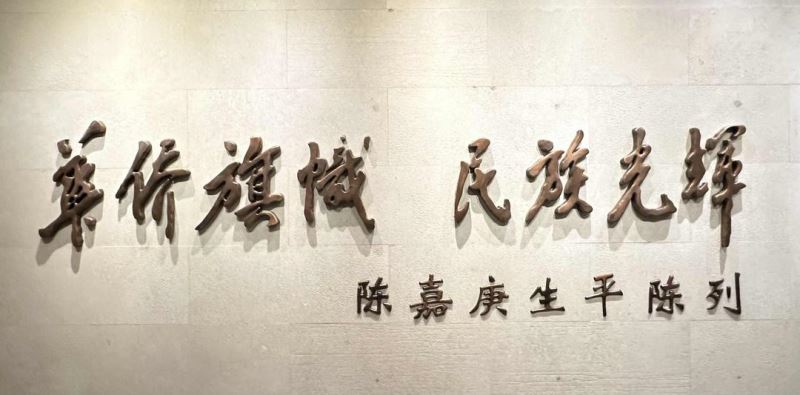 华侨旗帜 民族光辉
陈嘉庚生平陈列